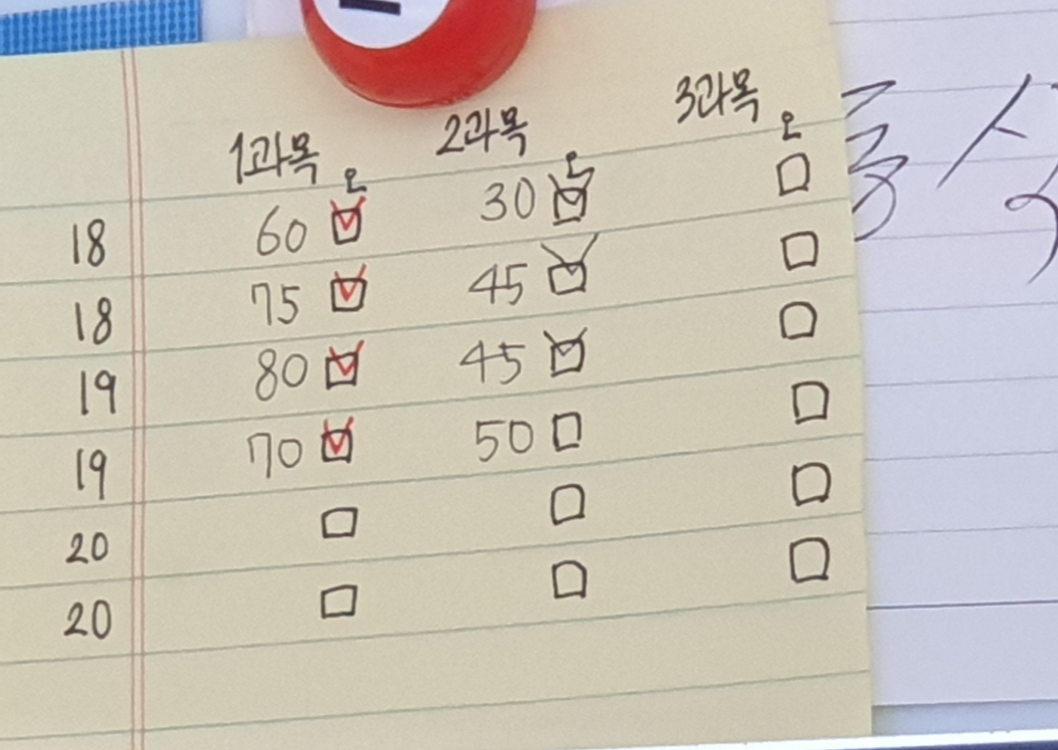 1과목 2과목 3과목
오 오 오
18 60 30
18 75 45
19 80 45
19 70 50
20
20